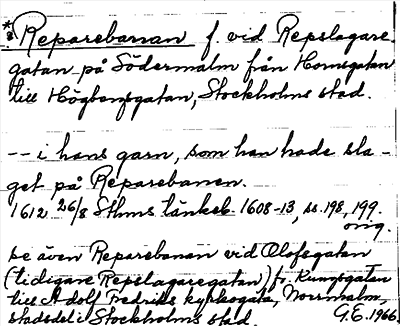 *? Reparebanan f. vid Repslagare-
gatan på Södermalm från Hornsgatan
till Högbergsgatan, Stockholms stad.
-- i hans garn, som han hade sla-
get på Reparebanen.
1612 26/8 Sthms tänkeb. 1608-13, ss. 198, 199.
orig.
se även Reparebanan vid Olofsgatan
(tidigare Repslagaregatan) fr. Kungsgatan
till Adolf Fredriks kyrkogata, Norrmalm,
stadsdel i Stockholms stad. G.E. 1966.